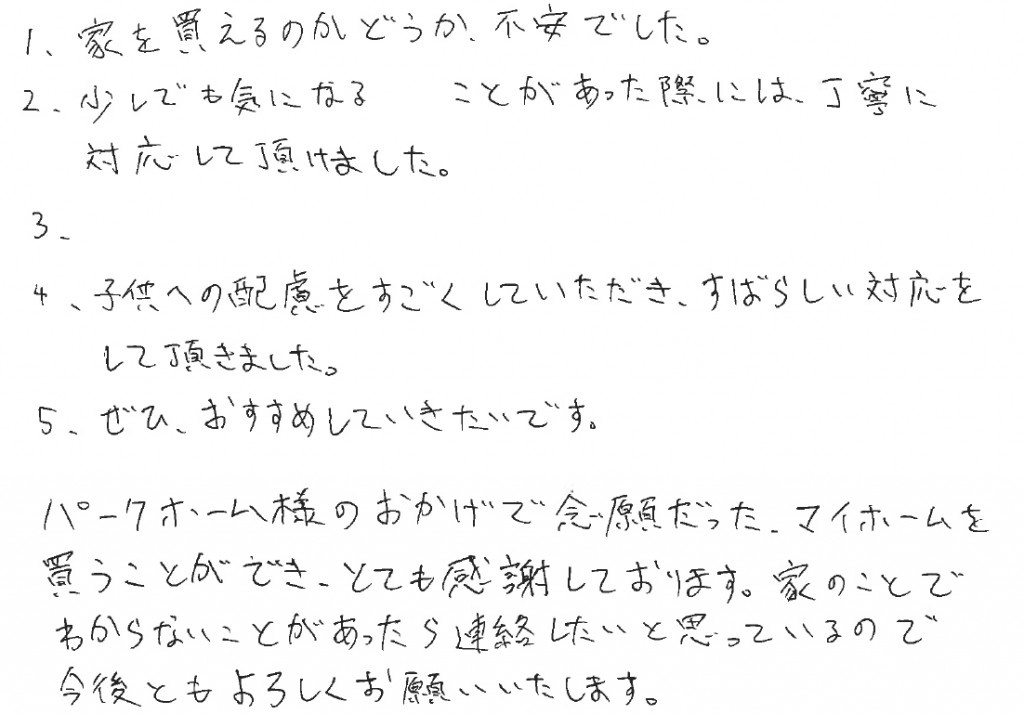 1、家を買えるのかどうか、不安でした。
2、少しでも気になる　　ことがあった際には、丁寧に
対応して頂けました。
3、
4、子供への配慮をすごくしていただき、すばらしい対応を
して頂きました。
5、ぜひ、おすすめしていきたいです。
パークホーム様のおかげで念願だった、マイホームを
買うことができ、とても感謝しております。家のことで
わからないことがあったら連絡したいと思っているので
今後ともよろしくお願いいたします。